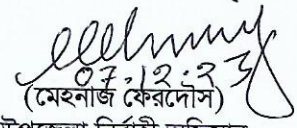 07.12.23
(মেহনাজ ফেরদৌস)
উপজেলা নির্বাহী অফিসার